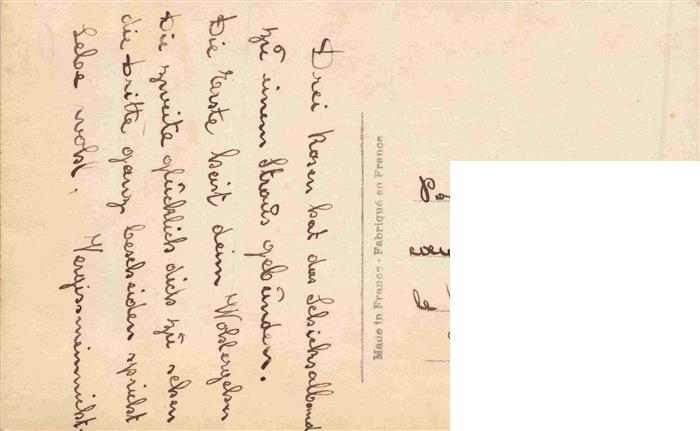 Drei Rosen hat das Schiksalband
zu einem Straus gebunden.
Die Erste heist deim Wohlergehen
Die zweite glücklich dich zu sehen
die dritte ganz bescheiden spricht
Lebe wohl, Vergissmeinnicht.
Made in France - Fabriqué en France
le